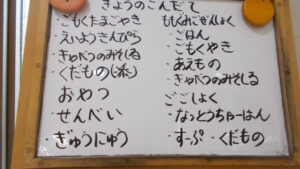 きょうのこんだて
・ごもくたまごやき
・えいようきんぴら
・きゃべつのみそしる
・くだもの(添)
おやつ
・せんべい
・ぎゅうにゅう
ももぐみごぜんしょく
・ごはん
・ごもくやき
・あえもの
・きゃべつのみそしる
ごごしょく
・なっとうちゃーはん
・すーぷ・くだもの